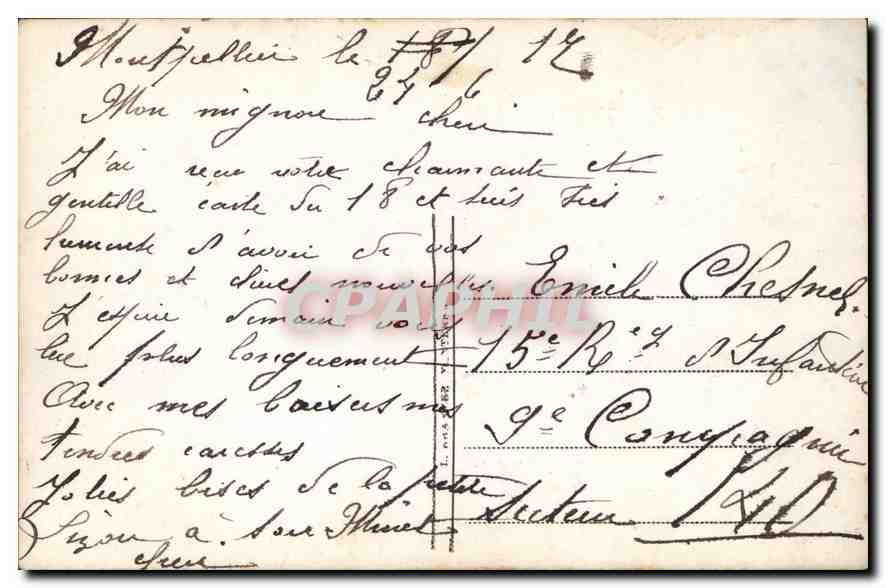 Montpellier le 18/ 17
24 6
Mon mignon cheri
J'ai reçu votre charmante et
gentille carte du 18 et suis très
d'avoir de vos
bonnes et nouvelles
J'espère demain vous
lire plus longuement
Avec mes baisers mes
tendres caresses
Jolies bises de la petite
Lizou à son Minet
cheri
Emile Chesnel
15e Reg d'Infanterie
9e Compagnie
Secteur 140
CPAPHIL